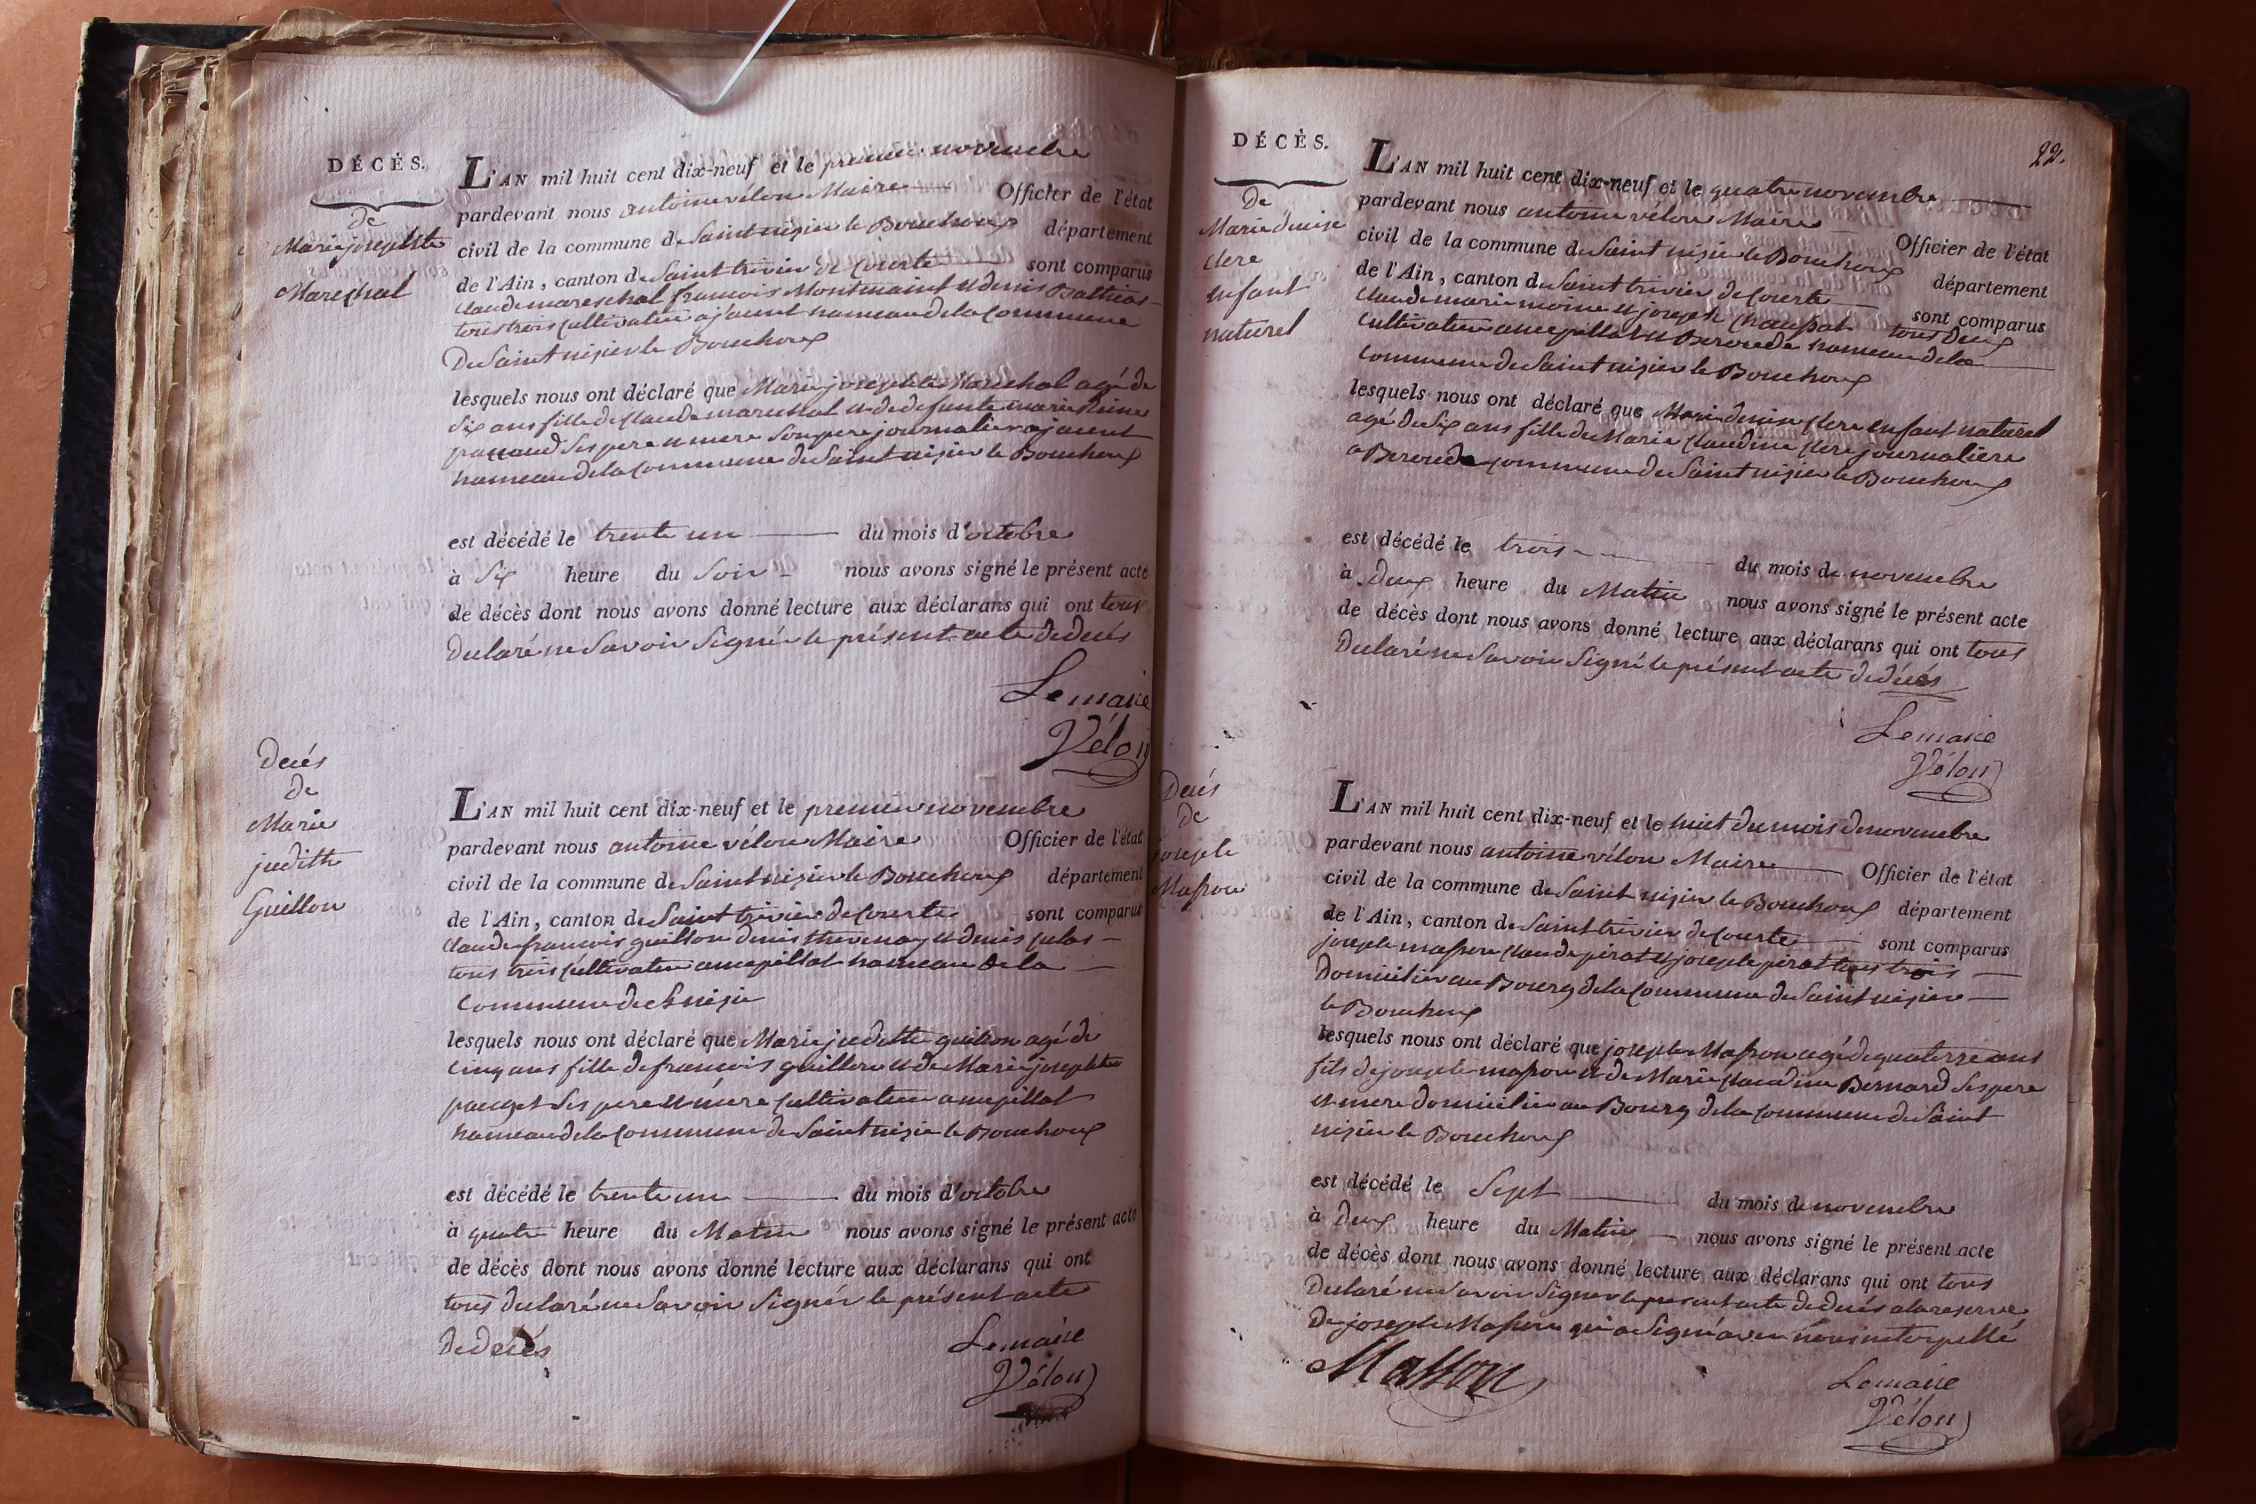 DÉCÈS.
de
Marie josephte
Mareschal
L'AN mil huit cent dix-neuf et le premier novembre
pardevant nous antoine vélon Maire Officier de l'état
civil de la commune de Saint nizier le Bouchoux département
de l'Ain, canton de Saint trivier de Courte sont comparus
Claude mareschal francois Montmain et denis
tous trois Cultivateur ajaunt hameau de la Commune
De Saint nizier le Bouchoux
lesquels nous ont déclaré que Marie josephte Mareschal agé de
Six ans fille de Claude mareschal et de defunte marie
Ses pere et mere Son pere journalier ajaunt
hameau de la Commune de Saint nizier le Bouchoux
est décédé le trente un du mois d'octobre
à Six heure du Soir nous avons signé le présent acte
de décès dont nous avons donné lecture aux déclarans qui ont tous
Déclaré ne Savoir Signér le présent acte de decés
Lemaire
Vélon
Decés
de
Marie
judith
Guillon
L'AN mil huit cent dix-neuf et le premier novembre
pardevant nous antoine vélon Maire Officier de l'état
civil de la commune de Saint nizier le Bouchoux département
de l'Ain, canton de Saint trivier de Courte sont comparus
Claude francois guillon denis thevenay et denis
tous trois Cultivateur hameau de la
Commune de St nizie
lesquels nous ont déclaré que Marie judith guillon agé de
Cinq ans fille de francois guillon et de Marie josephte
pauget Ses pere et mére Cultivateur
hameau de la Commune de Saint nizier le Bouchoux
est décédé le trente un du mois d'octobre
à quatre heure du Matin nous avons signé le présent acte
de décès dont nous avons donné lecture aux déclarans qui ont
tous declaré ne Savoir Signér le présent acte
De decés
Lemaire
Vélon
22.
DÉCÈS.
De
Marie denise
Clere
enfant
naturel
L'AN mil huit cent dix-neuf et le quatre novembre
pardevant nous antoine vélon Maire Officier de l'état
civil de la commune de Saint nizier le Bouchoux département
de l'Ain, canton de Saint trivier de Courte sont comparus
Claude marie moine et joseph Chaussat tous deux
Cultivateur et Beroude hameau de la
Commune de Saint nizier le Bouchoux
lesquels nous ont déclaré que Marie denise Clere enfant naturel
agé de Six ans fille de Marie Claudine Clere journaliere
a Beroude commune de Saint nizier le Bouchoux
est décédé le trois du mois de novembre
à Deux heure du Matin nous avons signé le présent acte
de décès dont nous avons donné lecture aux déclarans qui ont tous
Declaré ne Savoir Signé le présent acte de décés
Lemaire
Vélon
Decés
De
joseph
Masson
L'AN mil huit cent dix-neuf et le huit du mois de novembre
pardevant nous antoine vélon Maire Officier de l'état
civil de la commune de Saint nizier le Bouchoux département
de l'Ain, canton de Saint trivier de Courte sont comparus
joseph masson Claude pirat et joseph pirat tous trois
Domicilier au Bourg de la Commune de Saint nizier
le Bouchoux
lesquels nous ont déclaré que joseph Masson agé de quatorze ans
fils de joseph masson et de Marie Claudine Bernard Ses pere
et mere domicilier au Bourg de la Commune de Saint
nizier le Bouchoux
est décédé le Sept du mois de novembre
à Deux heure du Matin nous avons signé le présent acte
de décès dont nous avons donné lecture aux déclarans qui ont tous
Declaré ne Savoir Signer le present acte de decés a la reserve
De joseph Masson qui a Signé avec nous
Masson
Lemaire
Vélon